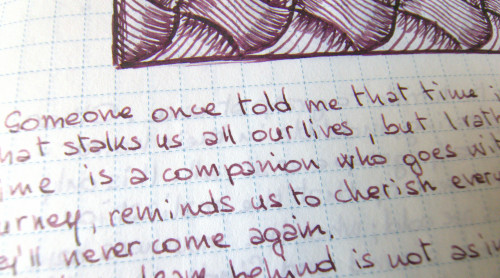 Someone once told me that time i
hat stalks us all our lives, but I rat
ime is a companion who goes wit
urney, reminds us to cherish ever
ey'll never come again.
behind is not as i